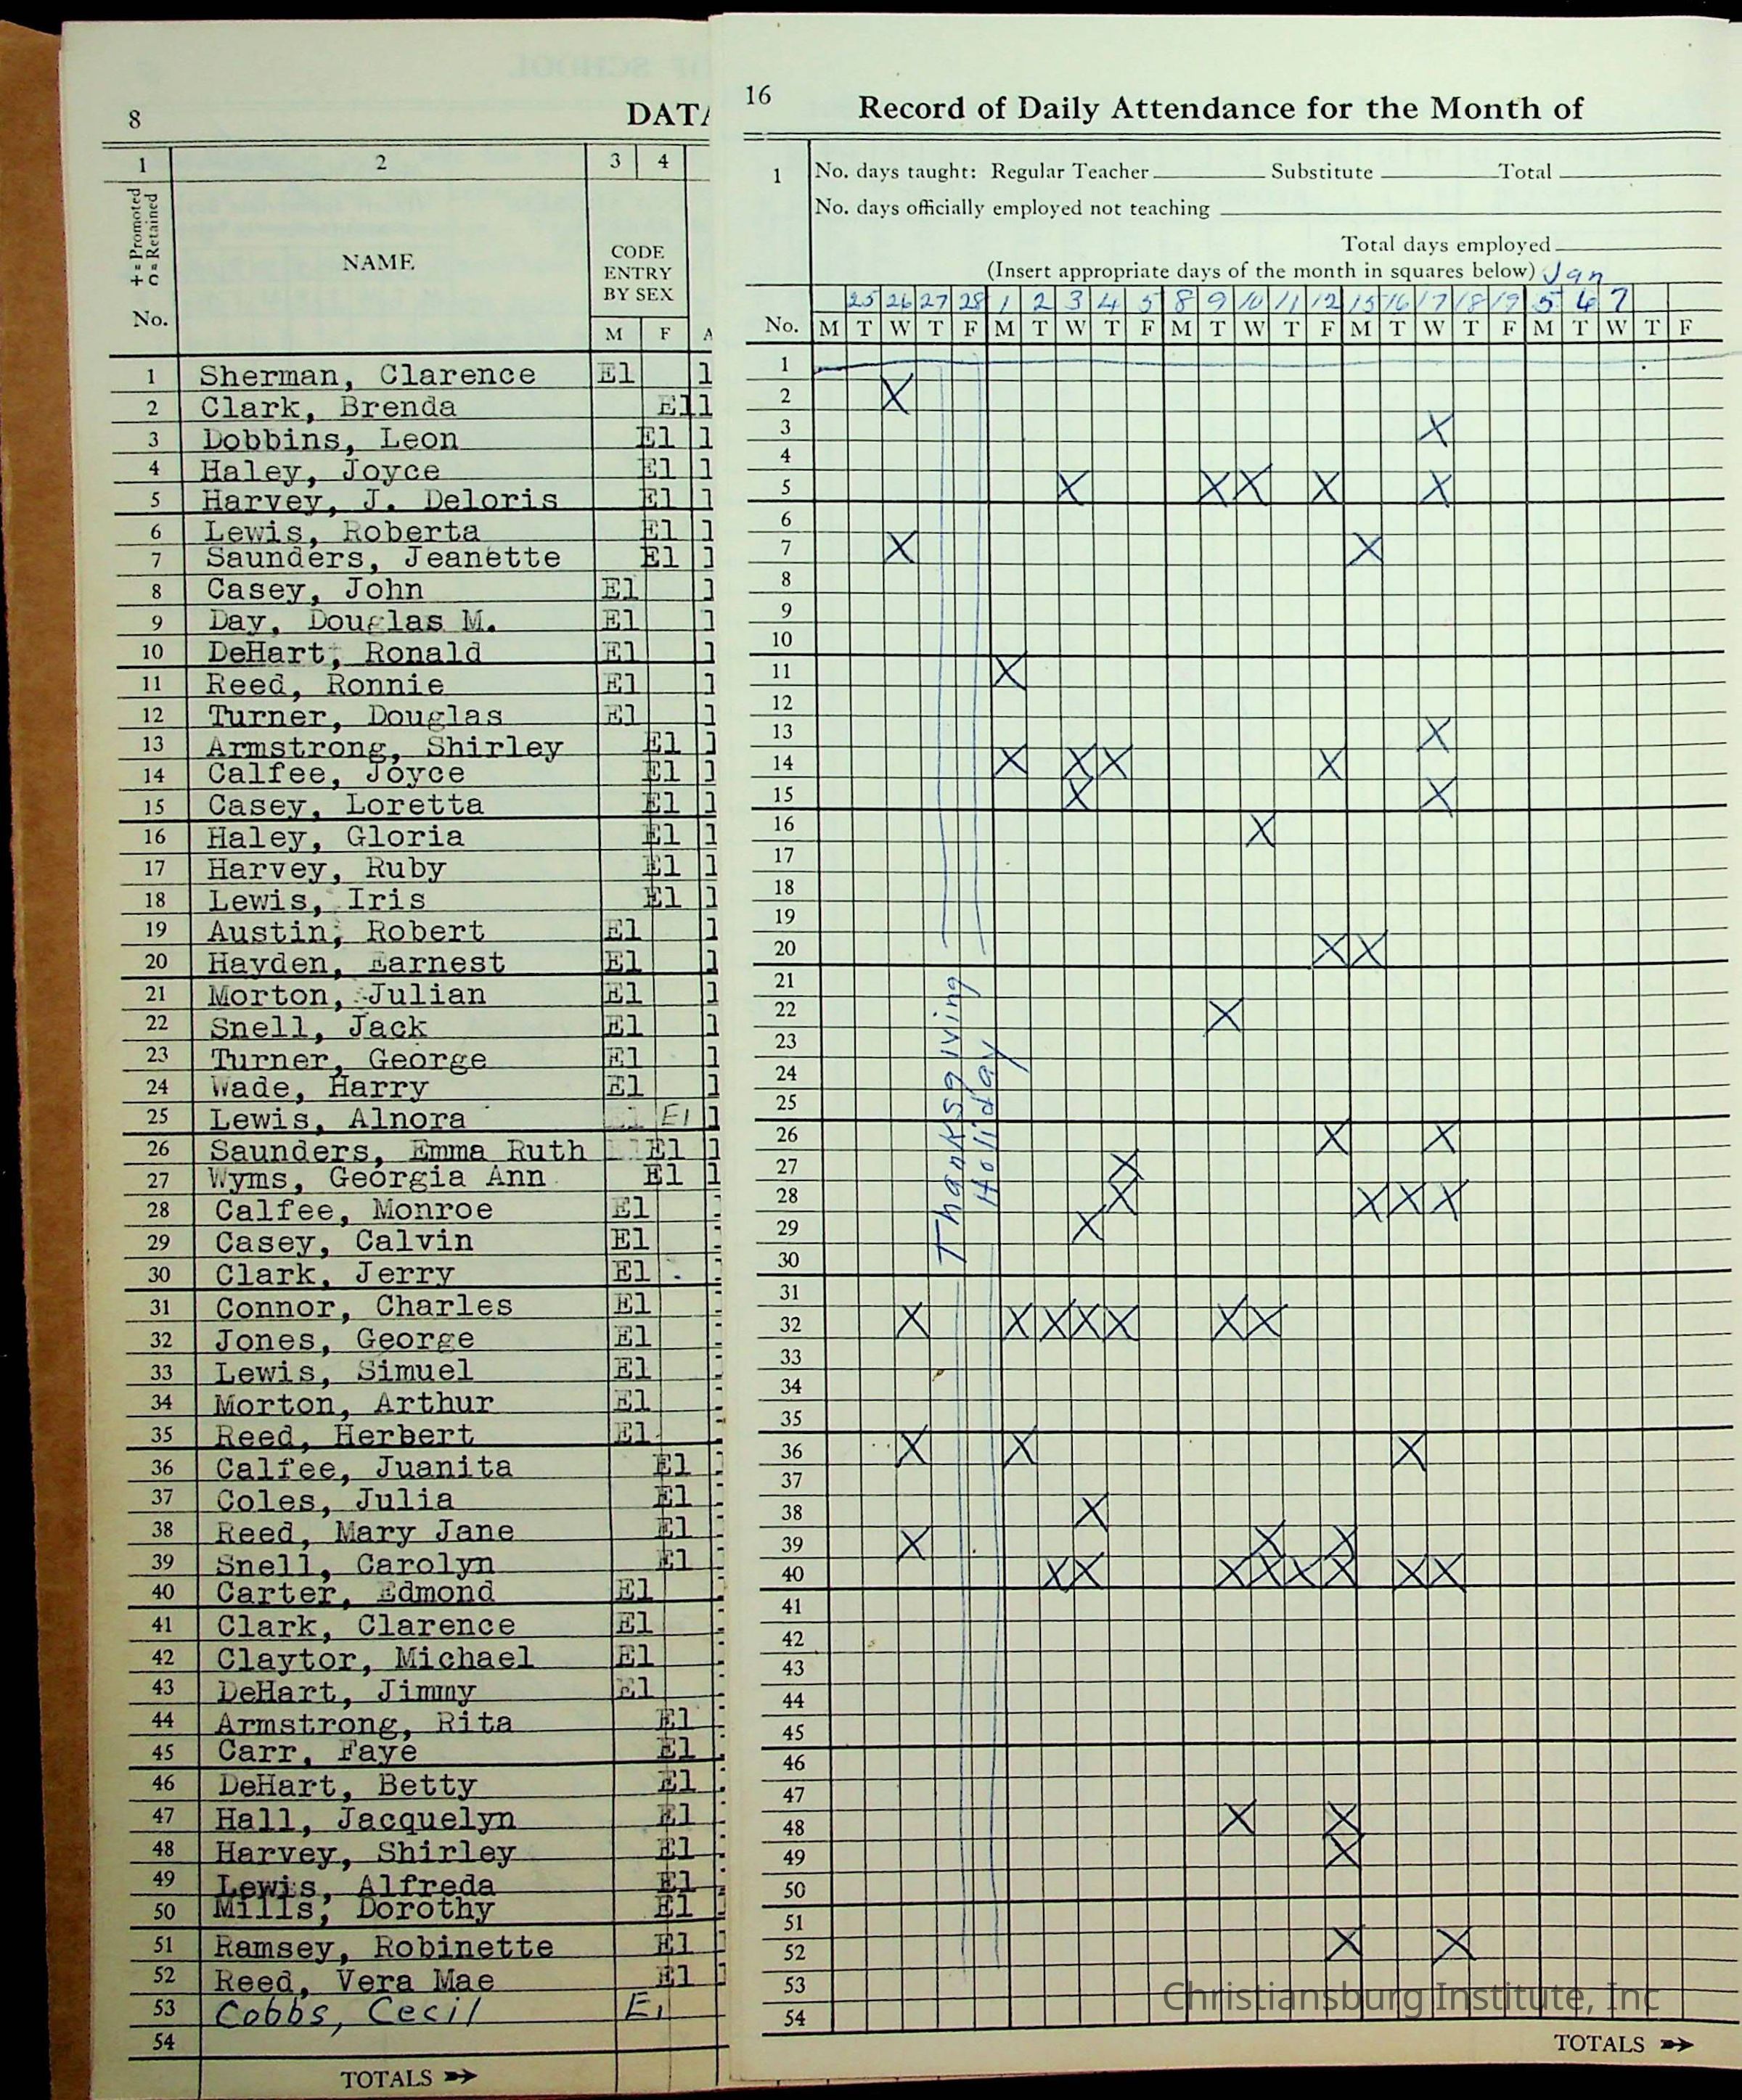 8
DATA
1 2 3 4
+ = Promoted
n = Retained
No.
NAME
CODE
ENTRY
BY SEX
M F A
1 Sherman, Clarence El 1
2 Clark, Brenda El 1
3 Dobbins, Leon El 1
4 Haley, Joyce El 1
5 Harvey, J. Deloris El 1
6 Lewis, Roberta El 1
7 Saunders, Jeanette El 1
8 Casey, John El 1
9 Day, Douglas M. El 1
10 DeHart, Ronald El 1
11 Reed, Ronnie El 1
12 Turner, Douglas El 1
13 Armstrong, Shirley El 1
14 Calfee, Joyce El 1
15 Casey, Loretta El 1
16 Haley, Gloria El 1
17 Harvey, Ruby El 1
18 Lewis, Iris El 1
19 Austin, Robert El 1
20 Hayden, Earnest El 1
21 Morton, Julian El 1
22 Snell, Jack El 1
23 Turner, George El 1
24 Wade, Harry El 1
25 Lewis, Alnora El 1
26 Saunders, Emma Ruth El 1
27 Wyms, Georgia Ann El 1
28 Calfee, Monroe El
29 Casey, Calvin El
30 Clark, Jerry El
31 Connor, Charles El
32 Jones, George El
33 Lewis, Simuel El
34 Morton, Arthur El
35 Reed, Herbert El
36 Calfee, Juanita El
37 Coles, Julia El
38 Reed, Mary Jane El
39 Snell, Carolyn El
40 Carter, Edmond El
41 Clark, Clarence El
42 Claytor, Michael El
43 DeHart, Jimmy El
44 Armstrong, Rita El
45 Carr, Faye El
46 DeHart, Betty El
47 Hall, Jacquelyn El
48 Harvey, Shirley El
49 Lewis, Alfreda El
50 Mills, Dorothy El
51 Ramsey, Robinette El
52 Reed, Vera Mae El
53 Cobbs, Cecil El
54
TOTALS
16
Record of Daily Attendance for the Month of
1 No. days taught: Regular Teacher Substitute Total
No. days officially employed not teaching
Total days employed
(Insert appropriate days of the month in squares below) Jan
25 26 27 28 1 2 3 4 5 8 9 10 11 12 15 16 17 18 19 5 6 7
No. M T W T F M T W T F M T W T F M T W T F M T W T F
1
2 X
3 X
4
5 X X X X X
6
7 X X
8
9
10
11 X
12
13 X
14 X X X X
15 X X
16 X
17
18
19
20 X X
21
22 X
23
24
25
26 X X
27 X
28 X X X X
29 X
30
31
32 X X X X X X X
33
34
35
36 X X X
37
38 X
39 X X X
40 X X X X X X X X
41
42
43
44
45
46
47
48 X X
49 X
50
51
52 X X
53
54
Thanksgiving
Holliday
TOTALS
Christiansburg Institute, Inc